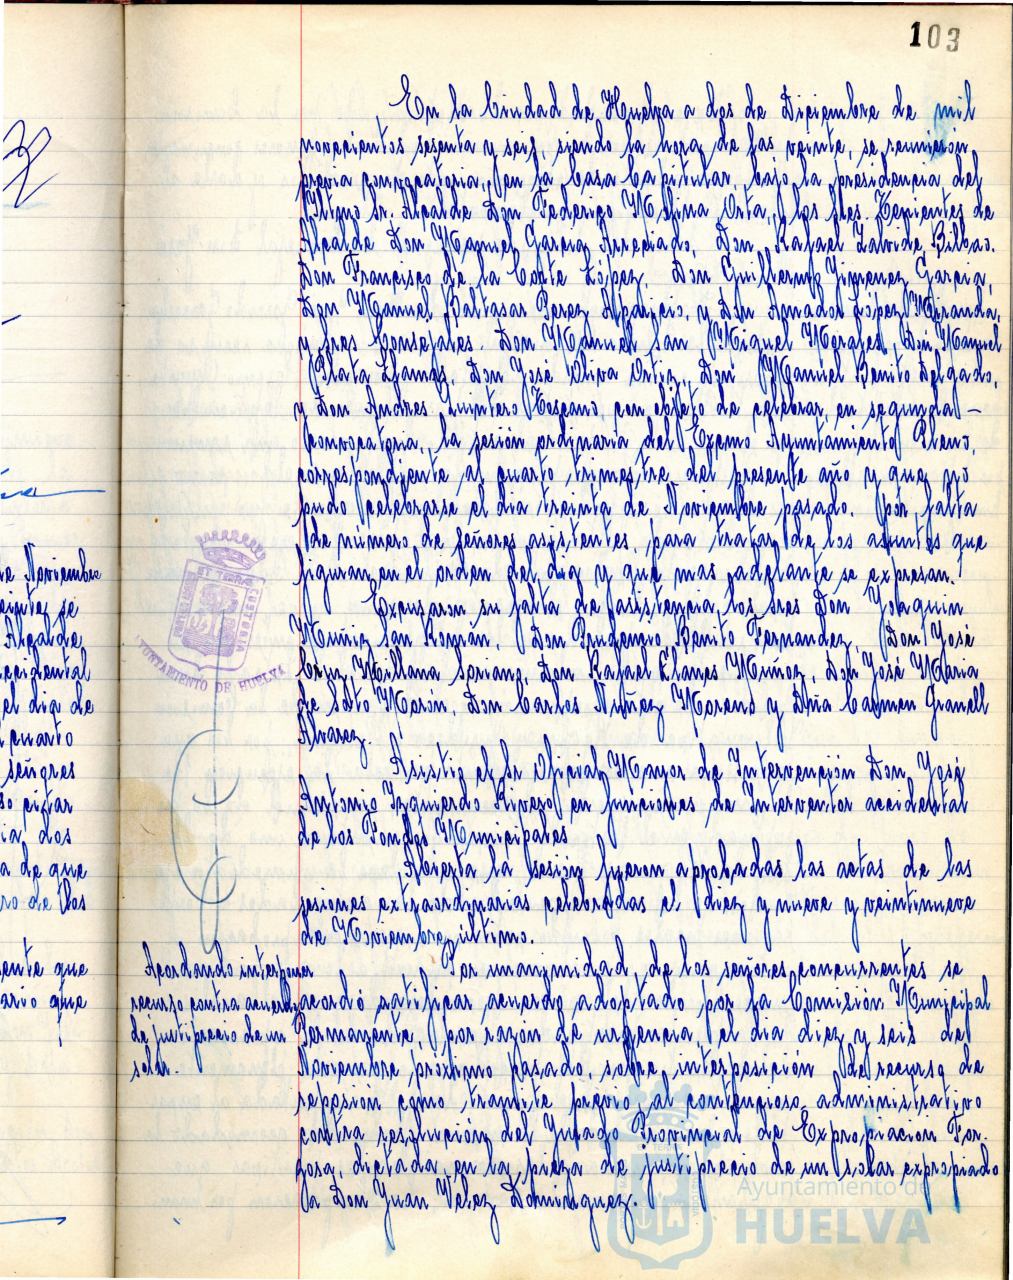 103
En la Ciudad de Huelva a dos de Diciembre de mil
novecientos sesenta y seis, siendo la hora de las veinte, se reunieron
previa convocatoria, en la Casa Capitular, bajo la presidencia del
Iltmo Sr. Alcalde Don Federico Molina Orta, los Sres. Tenientes de
Alcalde Don Manuel Garcia Arreciado, Don Rafael Zalvide Bilbao.
Don Francisco de la Corte López, Don Guillermo Jimenez Garcia,
Don Manuel Baltasar Perez Aparicio, y Don Amador López Miranda,
y Sres Concejales. Don Manuel San Miguel Morales, Don Manuel
Plata Llamas, Don José Oliva Ortiz, Don Manuel Benito Delgado,
y Don Andres Quintero Toscano, con objeto de celebrar, en segunda –
convocatoria, la sesión ordinaria del Excmo Ayuntamiento Pleno,
correspondiente al cuarto trimestre del presente año y que no
pudo celebrarse el dia treinta de Noviembre pasado. Por falta
de número de señores asistentes, para tratar de los asuntos que
figuran en el orden del dia y que mas adelante se expresan.
Excusaron su falta de asistencia, los Sres Don Joaquin
Muñiz San Román, Don Prudencio Benito Fernandez, Don José
Cruz Morillana Soriano, Don Rafael Llanes Muñoz, Don José Maria
de Soto Morón, Don Carlos Nuñez Moreno y Dña Carmen Granell
Alvarez.
Asistio el Sr Oficial Mayor de Intervención Don José
Antonio Izquierdo Rivero en funciones de Interventor accidental
de los Fondos Municipales
Abierta la sesión fueron aprobadas las actas de las
sesiones extraordinarias celebradas el diez y nueve y veintinueve
de Noviembre último.
Acordando interponer
recurso contra acuerdo
de justiprecio de un
solar.
Por unanimidad de los señores concurrentes se
acordó ratificar acuerdo adoptado por la Comisión Municipal
Permanente, por razón de urgencia, el dia diez y seis de
Noviembre próximo pasado, sobre interposición de recurso de
reposión como tramite previo al contencioso administrativo
contra resolución del Jurado Provincial de Expropiacion For-
zosa, dictada en la pieza de justiprecio de un solar expropiado
a Don Juan Velez Dominguez.
AYUNTAMIENTO DE HUELVA
re Noviembre
se
Alcalde
accidental
el dia de
cuarto
señores
citar
dos
de que
de los
que
que
Ayuntamiento de
HUELVA